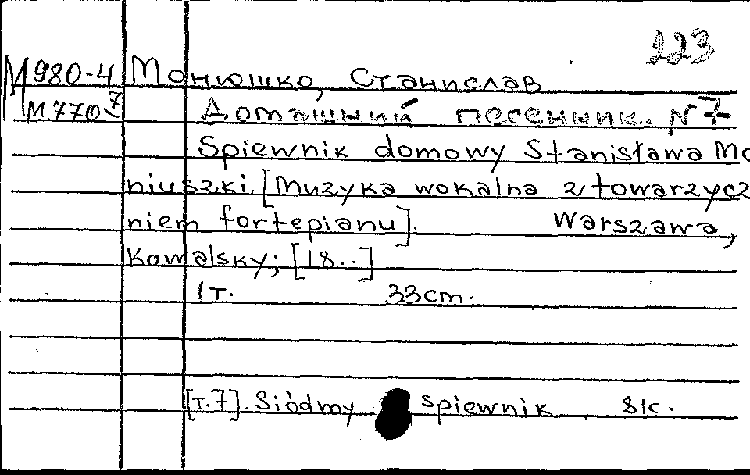 223
М980-4 Монюшко, Станислав
М770-7 Домашний песенник. N7
Spiewnik domowy Stanisława Mo
niuszki. [Muzyka wokalna z towarzycz
niem fortepianu]. Warszawa,
Kowalsky; [18..]
1т. 33cm.
[т.7]. Siódmy spiewnik. 81с.